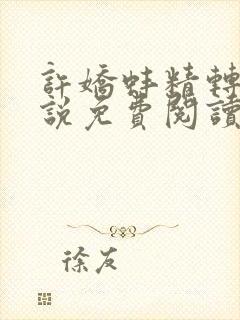 許嬌蚌精轉
說免費閱讀
徐友